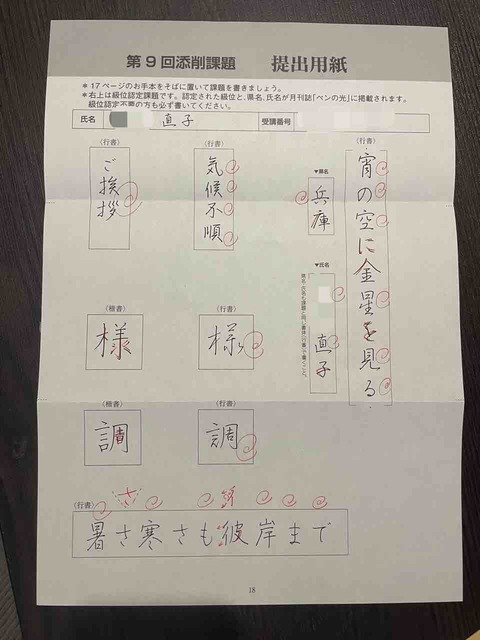 第9回添削課題 提出用紙
＊17ページのお手本をそばに置いて課題を書きましょう。
＊右上は級位認定課題です。認定された級位と、県名、氏名が月刊誌「ペンの光」に掲載されます。
級位認定不要の方も必ず書いてください。
氏名 直子 受講番号
（行書）
宵の空に金星を見る
▼県名
兵庫
▼氏名
直子
（行書）
気候不順
（行書）
ご挨拶
（行書）
様
（楷書）
様
（行書）
調
（楷書）
調
（行書）
暑さ寒さも彼岸まで
18